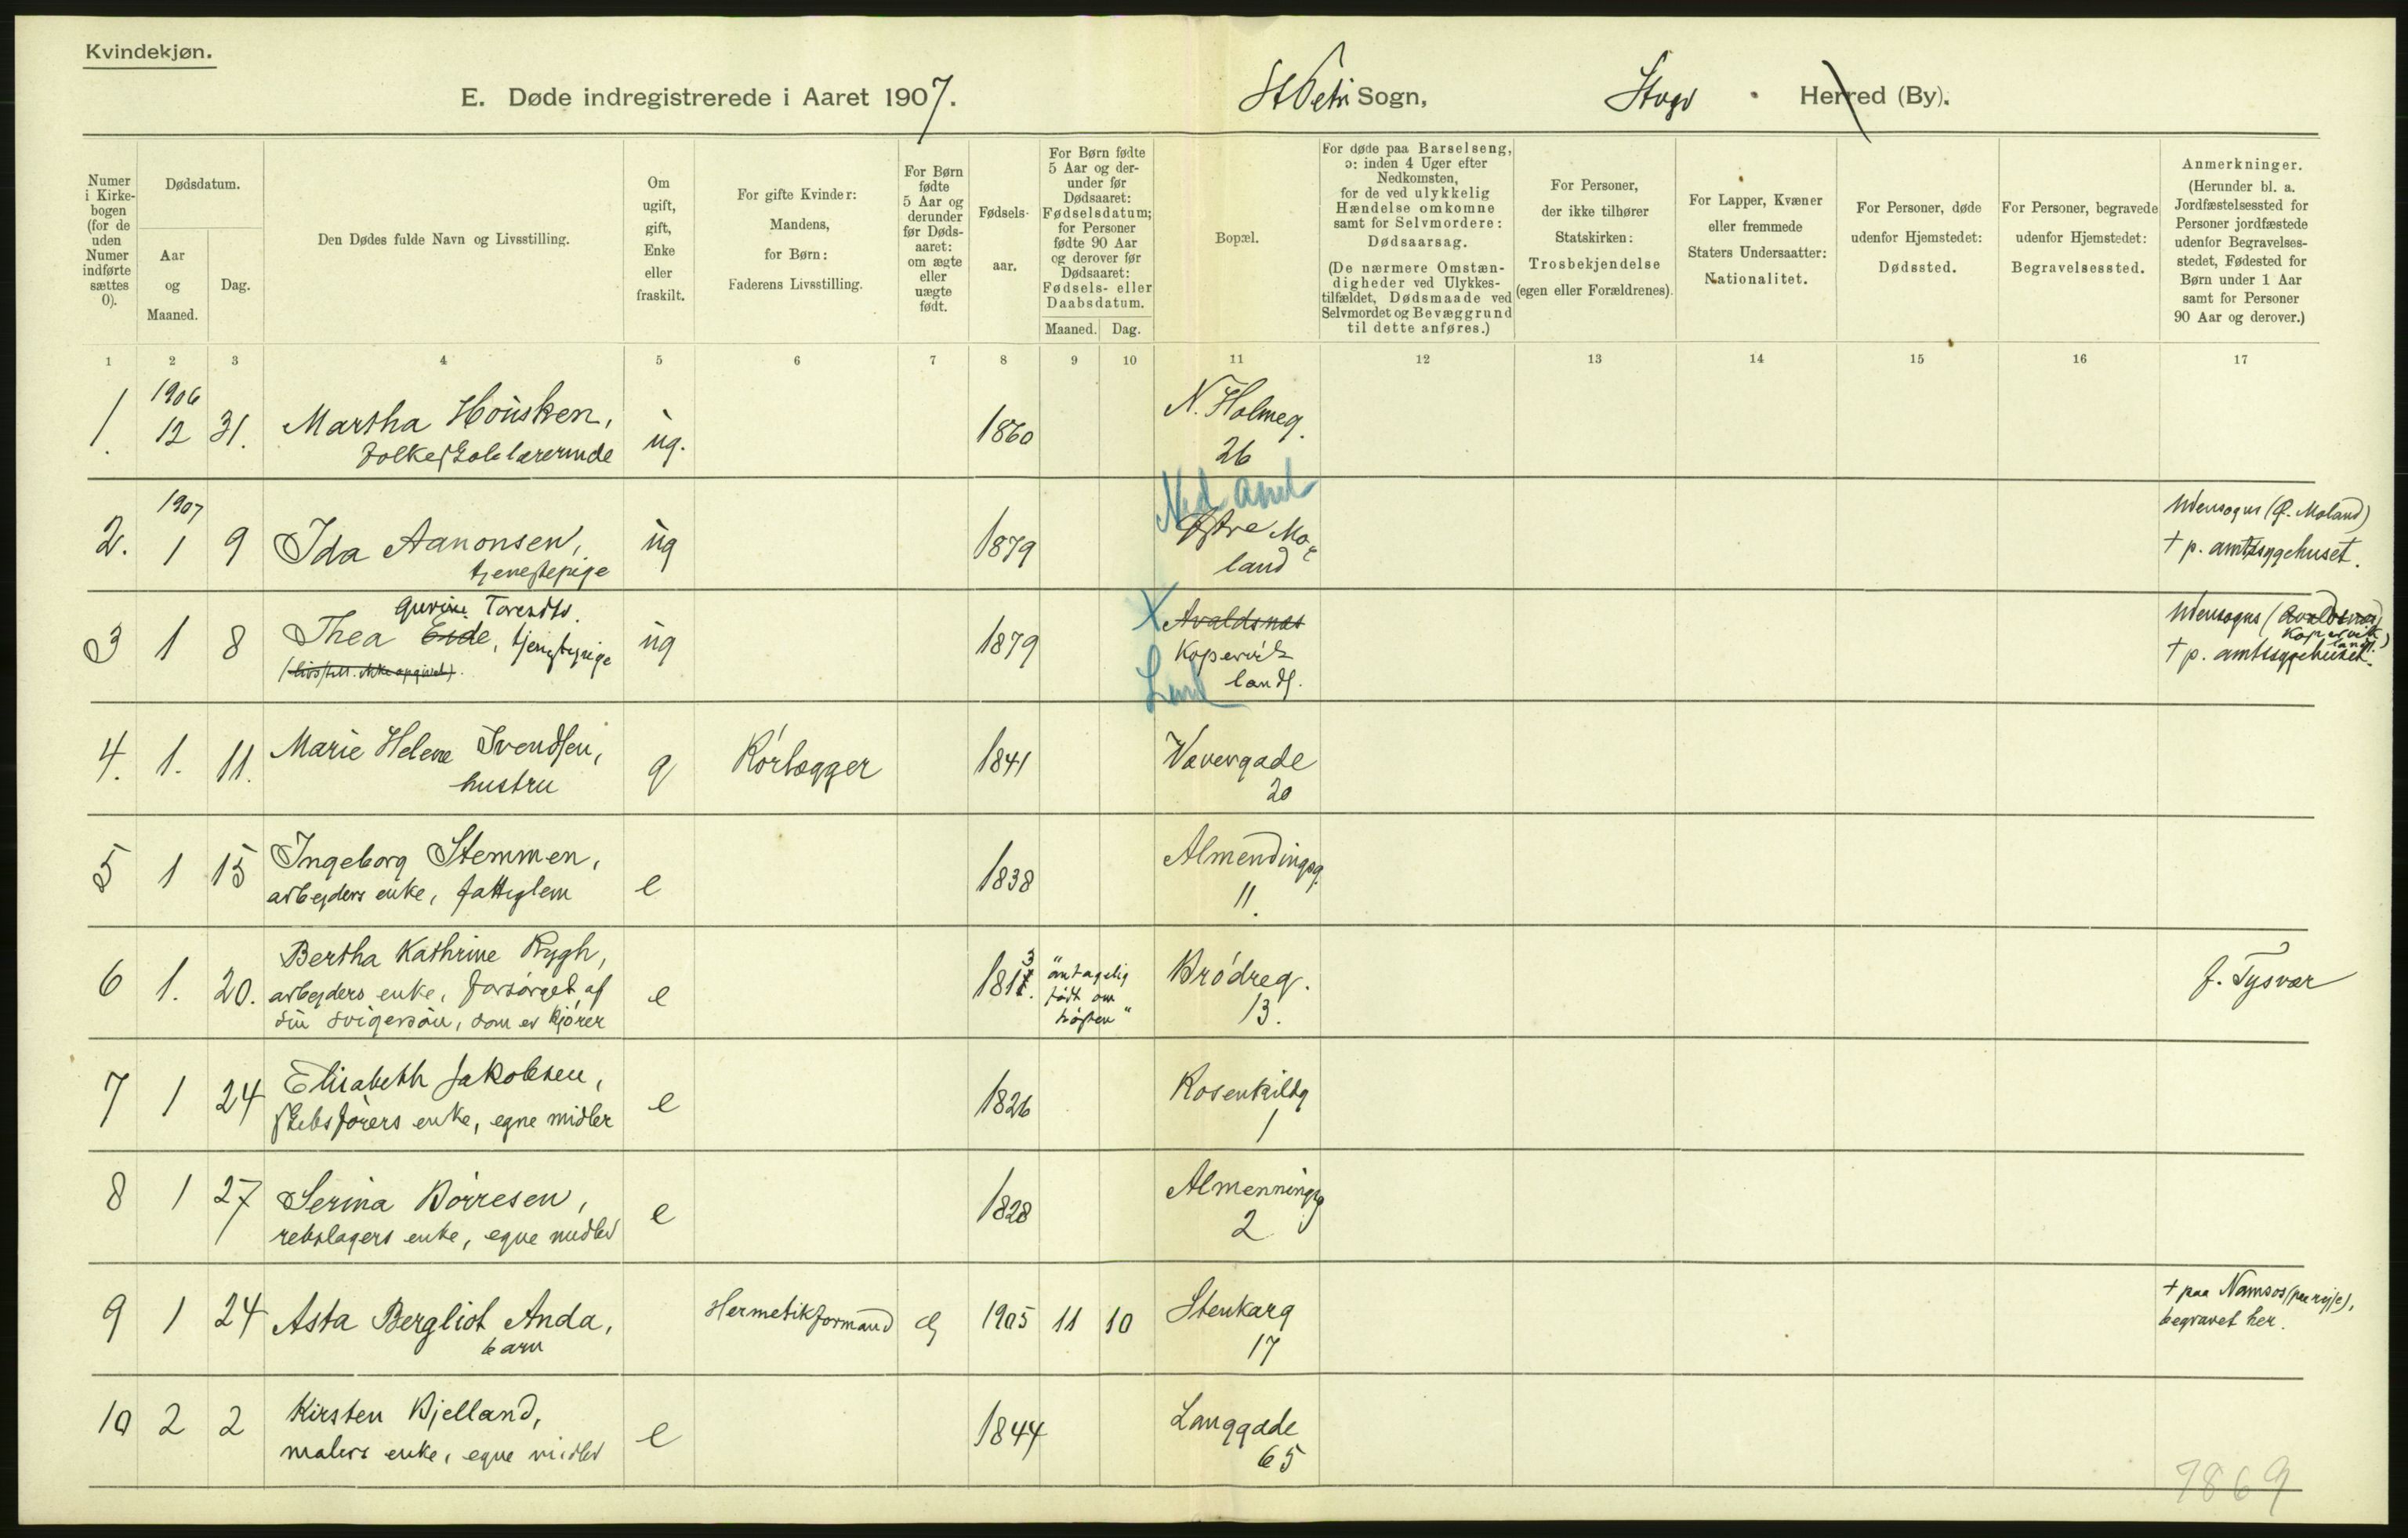 Kvindekjøn.
E. Døde indregistrerede i Aaret 1907.
St Petri Sogn,
Stvgr
Herred (By).
Numer i Kirke-bogen (for de uden Numer indførte sættes 0).
Dødsdatum.
Aar og Maaned.
Dag.
Den Dødes fulde Navn og Livsstilling.
Om ugift, gift, Enke eller fraskilt.
For gifte Kvinder: Mandens, for Børn: Faderens Livsstilling.
For Børn fødte 5 Aar og derunder før Døds-aaret: om ægte eller uægte født.
Fødsels-aar.
For Børn fødte 5 Aar og der-under før Dødsaaret: Fødselsdatum; for Personer fødte 90 Aar og derover før Dødsaaret: Fødsels- eller Daabsdatum.
Maaned. Dag.
Bopæl.
For døde paa Barselseng, ɔ: inden 4 Uger efter Nedkomsten, for de ved ulykkelig Hændelse omkomne samt for Selvmordere: Dødsaarsag.
(De nærmere Omstæn-digheder ved Ulykkes-tilfældet, Dødsmaade ved Selvmordet og Bevæggrund til dette anføres.)
For Personer, der ikke tilhører Statskirken: Trosbekjendelse (egen eller Forældrenes).
For Lapper, Kvæner eller fremmede Staters Undersaatter: Nationalitet.
For Personer, døde udenfor Hjemstedet: Dødssted.
For Personer, begravede udenfor Hjemstedet: Begravelsessted.
Anmerkninger.
(Herunder bl. a. Jordfæstelsessted for Personer jordfæstede udenfor Begravelses-stedet, Fødested for Børn under 1 Aar samt for Personer 90 Aar og derover.)
1 2 3 4 5 6 7 8 9 10 11 12 13 14 15 16 17
1906
1. 12 31. Martha Housken, ug. 1860 N. Holmeg.
folkeskolelærerinde 26
1907
2. 1 9 Ida Aanonsen, ug 1879 Østre Mo-
tjenestepige land
Ned
Udensogns (Ø. Moland)
† p. amtssygehuset.
3 1 8 Thea Eide, tjenestepige ug 1879
Gurine
(livsstill. ikke opgivet).
X Avaldsnes
Kopervik
lands.
Udensogns (Avaldsnes)
Kopervik
lands.)
† p. amtssygehuset.
4. 1. 11. Marie Helene Svendsen, g Rørlægger 1841 Vævergade
hustru 20
5 1 15 Ingeborg Stemmen, e 1838 Almendingsg.
arbejders enke, fattiglem 11.
6 1. 20. Bertha Kathrine Rygh, e 1813 Brødreg.
arbejders enke, forsørget af 13.
sin svigersøn, som er kjører
"antagelig
født om
høsten"
f. Tysvær
7 1 24 Elisabeth Jakobsen, e 1826 Rosenkildg
skibsførers enke, egne midler 1
8 1 27 Serina Børresen, e 1828 Almenningsg
rebslagers enke, egne midler 2
9 1 24 Asta Bergliot Anda, Hermetikformand æg 1905 11 10 Stenkarg
barn 17
† paa Namsos (paa rejse),
begravet her.
10 2 2 Kirsten Bjelland, e 1844 Langgade
malers enke, egne midler 65
7869